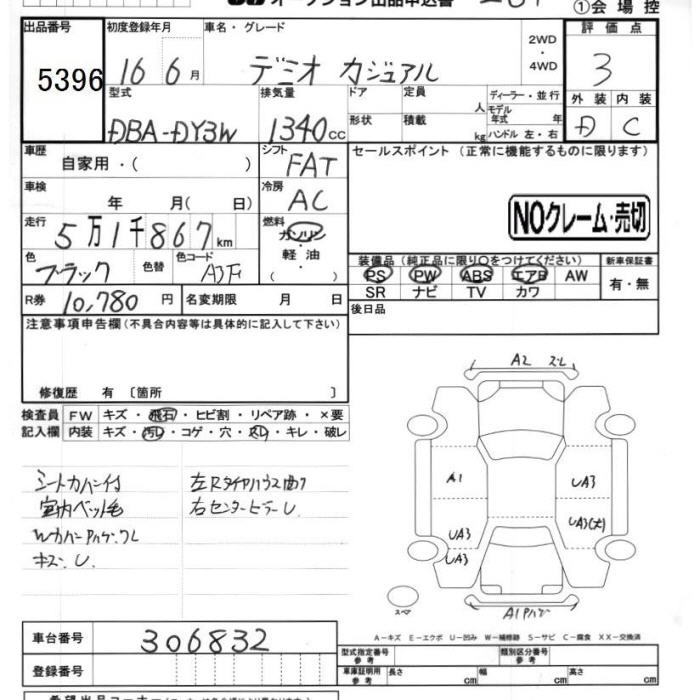 オークション出品申込書
①会場控
出品番号 初度登録年月 車名・グレード 2WD・4WD 評価点
5396 16 6月 デミオ カジュアル 3
型式 排気量 ドア 定員 人 ディーラー・並行 外装 内装
DBA-DY3W 1340cc 形状 積載 kg モデル年式 年 ハンドル 左・右 D C
車歴 自家用・( ) シフト FAT セールスポイント (正常に機能するものに限ります)
車検 年 月( 日) 冷房 AC
NOクレーム・売切
走行 5万1千867km 燃料 ガソリン・軽油・( )
色 ブラック 色替 色コード A3F
装備品 (純正品に限り○をつけてください) 新車保証書
PS PW ABS エアB AW 有・無
SR ナビ TV カワ
R券 10,780円 名変期限 月 日
後日品
注意事項申告欄(不具合内容等は具体的に記入して下さい)
修復歴 有〔箇所 〕
検査員記入欄 FW キズ・飛石・ヒビ割・リペア跡・×要
内装 キズ・汚レ・コゲ・穴・スレ・キレ・破レ
シートカバー付
室内ペット毛
キズ・U
右センターピラーU
A2
A1
UA3
UA3
UA3
UA3(大)
スペア
A－キズ E－エクボ U－凹み W－補修跡 S－サビ C－腐食 XX－交換済
車台番号 306832
登録番号
型式指定番号 参考 類別区分番号 参考
車庫証明用 参考 長さ cm 幅 cm 高さ cm